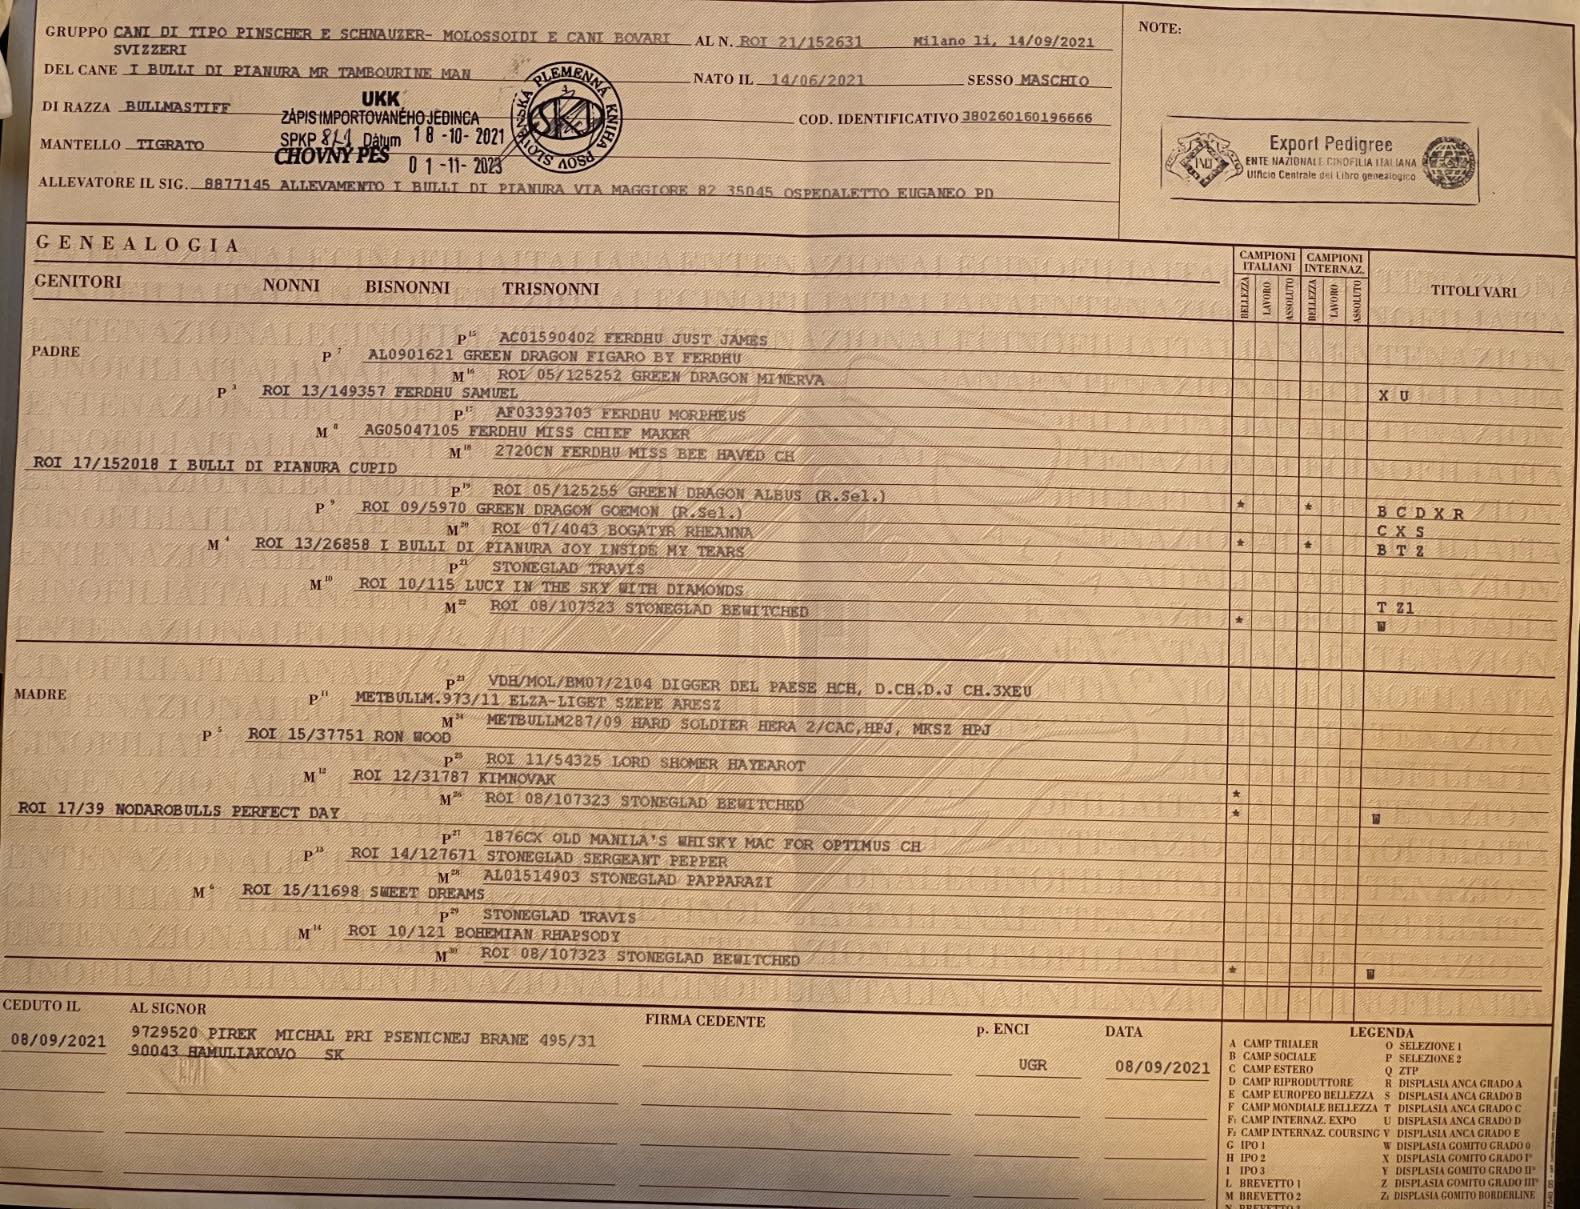 GRUPPO CANI DI TIPO PINSCHER E SCHNAUZER- MOLOSSOIDI E CANI BOVARI AL N. ROI 21/152631 Milano li, 14/09/2021
SVIZZERI
DEL CANE I BULLI DI PIANURA MR TAMBOURINE MAN NATO IL 14/06/2021 SESSO MASCHIO
DI RAZZA BULLMASTIFF COD. IDENTIFICATIVO 380260160196666
MANTELLO TIGRATO
ALLEVATORE IL SIG. 8877145 ALLEVAMENTO I BULLI DI PIANURA VIA MAGGIORE 82 35045 OSPEDALETTO EUGANEO PD
UKK
ZÁPIS IMPORTOVANÉHO JEDINCA
SPKP 811 Dátum 18-10-2021
CHOVNÝ PES
01-11-2023
SLOVENSKÁ PLEMENNÁ KNIHA PSOV
SKJ
NOTE:
Export Pedigree
ENTE NAZIONALE CINOFILIA ITALIANA
Ufficio Centrale del Libro genealogico
GENEALOGIA
GENITORI NONNI BISNONNI TRISNONNI
CAMPIONI ITALIANI CAMPIONI INTERNAZ.
BELLEZZA LAVORO ASSOLUTO BELLEZZA LAVORO ASSOLUTO
TITOLI VARI
P 15 AC01590402 FERDHU JUST JAMES
PADRE P 7 AL0901621 GREEN DRAGON FIGARO BY FERDHU
M 16 ROI 05/125252 GREEN DRAGON MINERVA
P 3 ROI 13/149357 FERDHU SAMUEL X U
P 17 AF03393703 FERDHU MORPHEUS
M 8 AG05047105 FERDHU MISS CHIEF MAKER
M 18 2720CN FERDHU MISS BEE HAVED CH
ROI 17/152018 I BULLI DI PIANURA CUPID
P 19 ROI 05/125255 GREEN DRAGON ALBUS (R.Sel.)
P 9 ROI 09/5970 GREEN DRAGON GOEMON (R.Sel.) * * B C D X R
M 20 ROI 07/4043 BOGATYR RHEANNA C X S
M 4 ROI 13/26858 I BULLI DI PIANURA JOY INSIDE MY TEARS * * B T Z
P 21 STONEGLAD TRAVIS
M 10 ROI 10/115 LUCY IN THE SKY WITH DIAMONDS T Z1
M 22 ROI 08/107323 STONEGLAD BEWITCHED * W
P 23 VDH/MOL/BM07/2104 DIGGER DEL PAESE HCH, D.CH.D.J CH.3XEU
MADRE P 11 METBULLM.973/11 ELZA-LIGET SZEPE ARESZ
M 24 METBULLM287/09 HARD SOLDIER HERA 2/CAC,HPJ, MKSZ HPJ
P 5 ROI 15/37751 RON WOOD
P 25 ROI 11/54325 LORD SHOMER HAYEAROT
M 12 ROI 12/31787 KIMNOVAK *
M 26 ROI 08/107323 STONEGLAD BEWITCHED * W
ROI 17/39 NODAROBULLS PERFECT DAY
P 27 1876CX OLD MANILA'S WHISKY MAC FOR OPTIMUS CH
P 13 ROI 14/127671 STONEGLAD SERGEANT PEPPER
M 28 AL01514903 STONEGLAD PAPPARAZI
M 6 ROI 15/11698 SWEET DREAMS
P 29 STONEGLAD TRAVIS
M 14 ROI 10/121 BOHEMIAN RHAPSODY
M 30 ROI 08/107323 STONEGLAD BEWITCHED * W
CEDUTO IL AL SIGNOR FIRMA CEDENTE p. ENCI DATA
08/09/2021 9729520 PIREK MICHAL PRI PSENICNEJ BRANE 495/31 UGR 08/09/2021
90043 HAMULIAKOVO SK
LEGENDA
A CAMP TRIALER O SELEZIONE 1
B CAMP SOCIALE P SELEZIONE 2
C CAMP ESTERO Q ZTP
D CAMP RIPRODUTTORE R DISPLASIA ANCA GRADO A
E CAMP EUROPEO BELLEZZA S DISPLASIA ANCA GRADO B
F CAMP MONDIALE BELLEZZA T DISPLASIA ANCA GRADO C
F1 CAMP INTERNAZ. EXPO U DISPLASIA ANCA GRADO D
F2 CAMP INTERNAZ. COURSING V DISPLASIA ANCA GRADO E
G IPO 1 W DISPLASIA GOMITO GRADO 0
H IPO 2 X DISPLASIA GOMITO GRADO I°
I IPO 3 Y DISPLASIA GOMITO GRADO II°
L BREVETTO 1 Z DISPLASIA GOMITO GRADO III°
M BREVETTO 2 Z1 DISPLASIA GOMITO BORDERLINE